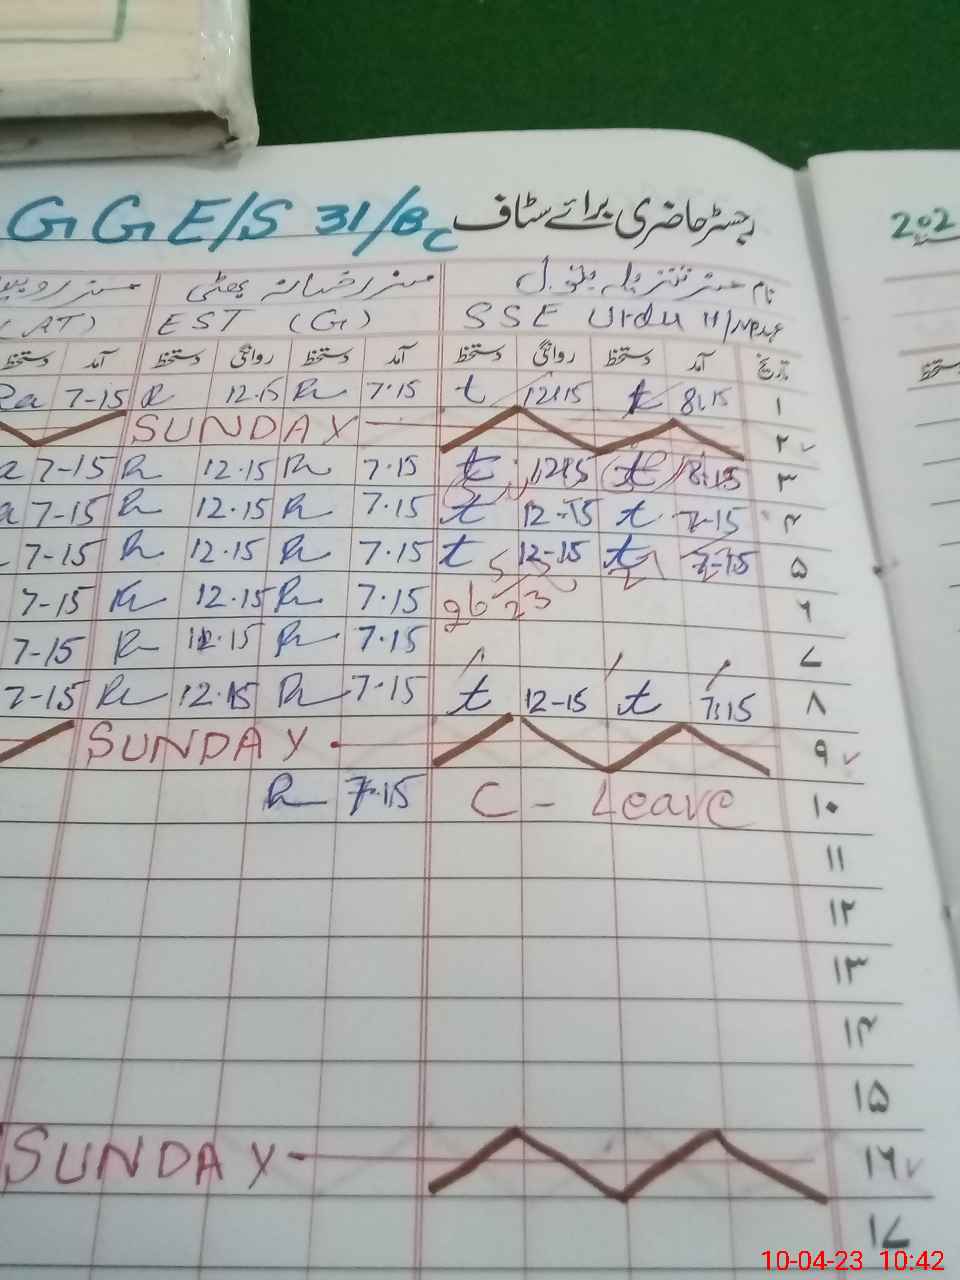 G G E/S 31/Bc رجسٹر حاضری برائے سٹاف 202
نام مسز
(AT) EST (G) SSE Urdu
آمد دستخط روانگی دستخط آمد دستخط روانگی دستخط آمد تاریخ
Ra 7-15 R 12.15 R 7.15 t 12:15 t 8:15 ۱
SUNDAY ۲
7-15 R 12.15 R 7.15 t 12:15 t 8:15 ۳
7-15 R 12.15 R 7.15 t 12-15 t 7-15 ۴
7-15 R 12.15 R 7.15 t 12-15 t 7-15 ۵
7-15 R 12.15 R 7.15 ۶
7-15 R 12.15 R 7.15 ۷
7-15 R 12.15 R 7-15 t 12-15 t 7:15 ۸
SUNDAY ۹
R 7.15 C - Leave ۱۰
۱۱
۱۲
۱۳
۱۴
۱۵
SUNDAY ۱۶
۱۷
10-04-23 10:42